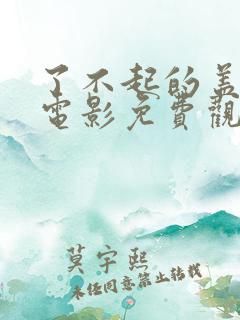 了不起的盖
電影免費觀
莫宇熙
未经同意禁止转载